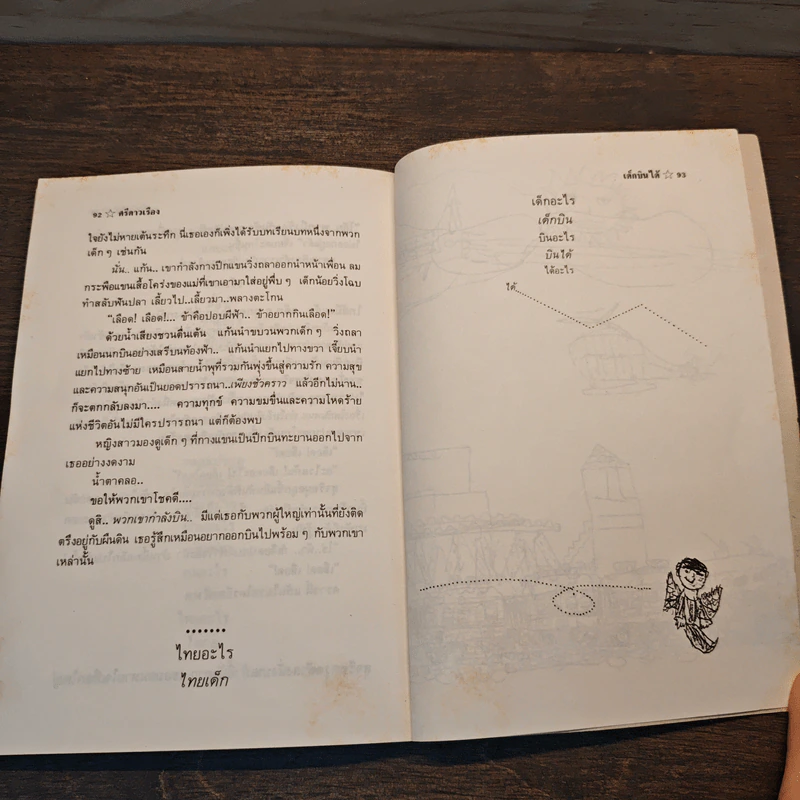 92 ☆ ศรีดาวเรือง
ใจยังไม่หายเต้นระทึก นี่เธอเองก็เพิ่งได้รับบทเรียนบทหนึ่งจากพวก
เด็ก ๆ เช่นกัน
นั่น.. แก้น.. เขากำลังกางปีกแขนวิ่งถลาออกนำหน้าเพื่อน ลม
กระพือแขนเสื้อโคร่งของแม่ที่เขาเอามาใส่อยู่พึ่บ ๆ เด็กน้อยวิ่งโฉบ
ทำสลับฟันปลา เลี้ยวไป..เลี้ยวมา..พลางตะโกน
“เลือด! เลือด!... ข้าคือปอบผีฟ้า.. ข้าอยากกินเลือด!”
ด้วยน้ำเสียงชวนตื่นเต้น แก้นนำขบวนพวกเด็ก ๆ วิ่งถลา
เหมือนนกบินอย่างเสรีบนท้องฟ้า.. แก้นนำแยกไปทางขวา เจี๊ยบนำ
แยกไปทางซ้าย เหมือนสายน้ำพุที่รวมกันพุ่งขึ้นสู่ความรัก ความสุข
และความสนุกอันเป็นยอดปรารถนา..เพียงชั่วคราว แล้วอีกไม่นาน..
ก็จะตกกลับลงมา.... ความทุกข์ ความขมขื่นและความโหดร้าย
แห่งชีวิตอันไม่มีใครปรารถนา แต่ก็ต้องพบ
หญิงสาวมองดูเด็ก ๆ ที่กางแขนเป็นปีกบินทะยานออกไปจาก
เธออย่างงดงาม
น้ำตาคลอ..
ขอให้พวกเขาโชคดี....
ดูสิ.. พวกเขากำลังบิน.. มีแต่เธอกับพวกผู้ใหญ่เท่านั้นที่ยังติด
ตรึงอยู่กับผืนดิน เธอรู้สึกเหมือนอยากออกบินไปพร้อม ๆ กับพวกเขา
เหล่านั้น
.......
ไทยอะไร
ไทยเด็ก
เด็กบินได้ ☆ 93
เด็กอะไร
เด็กบิน
บินอะไร
บินได้
ได้อะไร
ได้